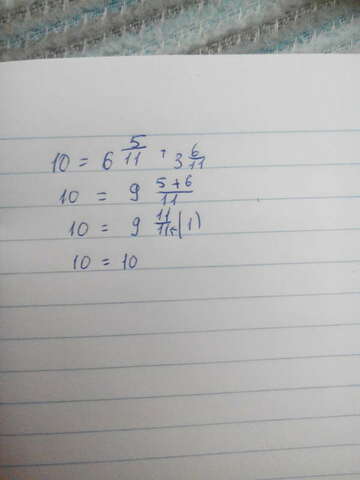 10 = 6 5/11 + 3 6/11
10 = 9 5+6/11
10 = 9 11/11 (1)
10 = 10